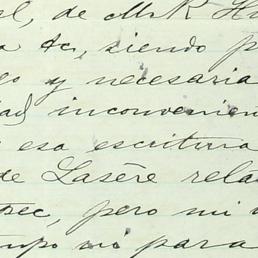 el, de Mr R Hu
a &c, siendo p
go y necesaria
dad inconvenien
esa escritura
de Lasère rela
pec, pero mi
mpo ni para